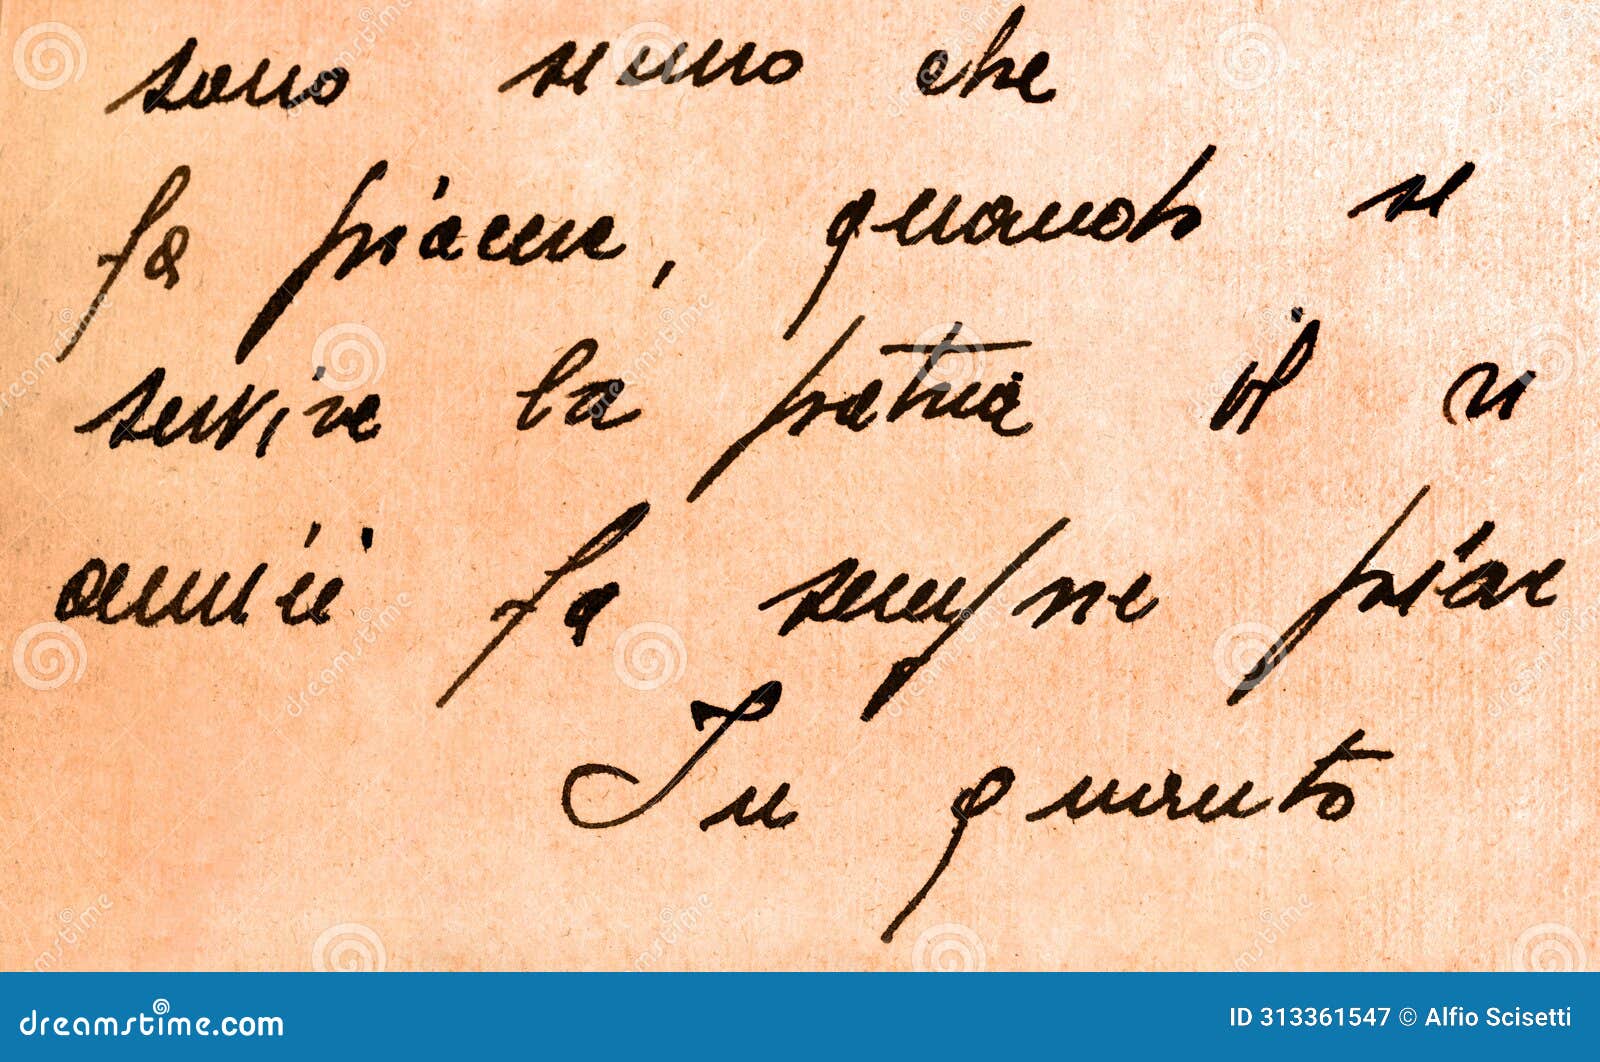 sono sicuro che
fa piacere, quando si
servire la patria il ri
amici fa sempre piace
In quanto
dreamstime.com
ID 313361547 © Alfio Scisetti